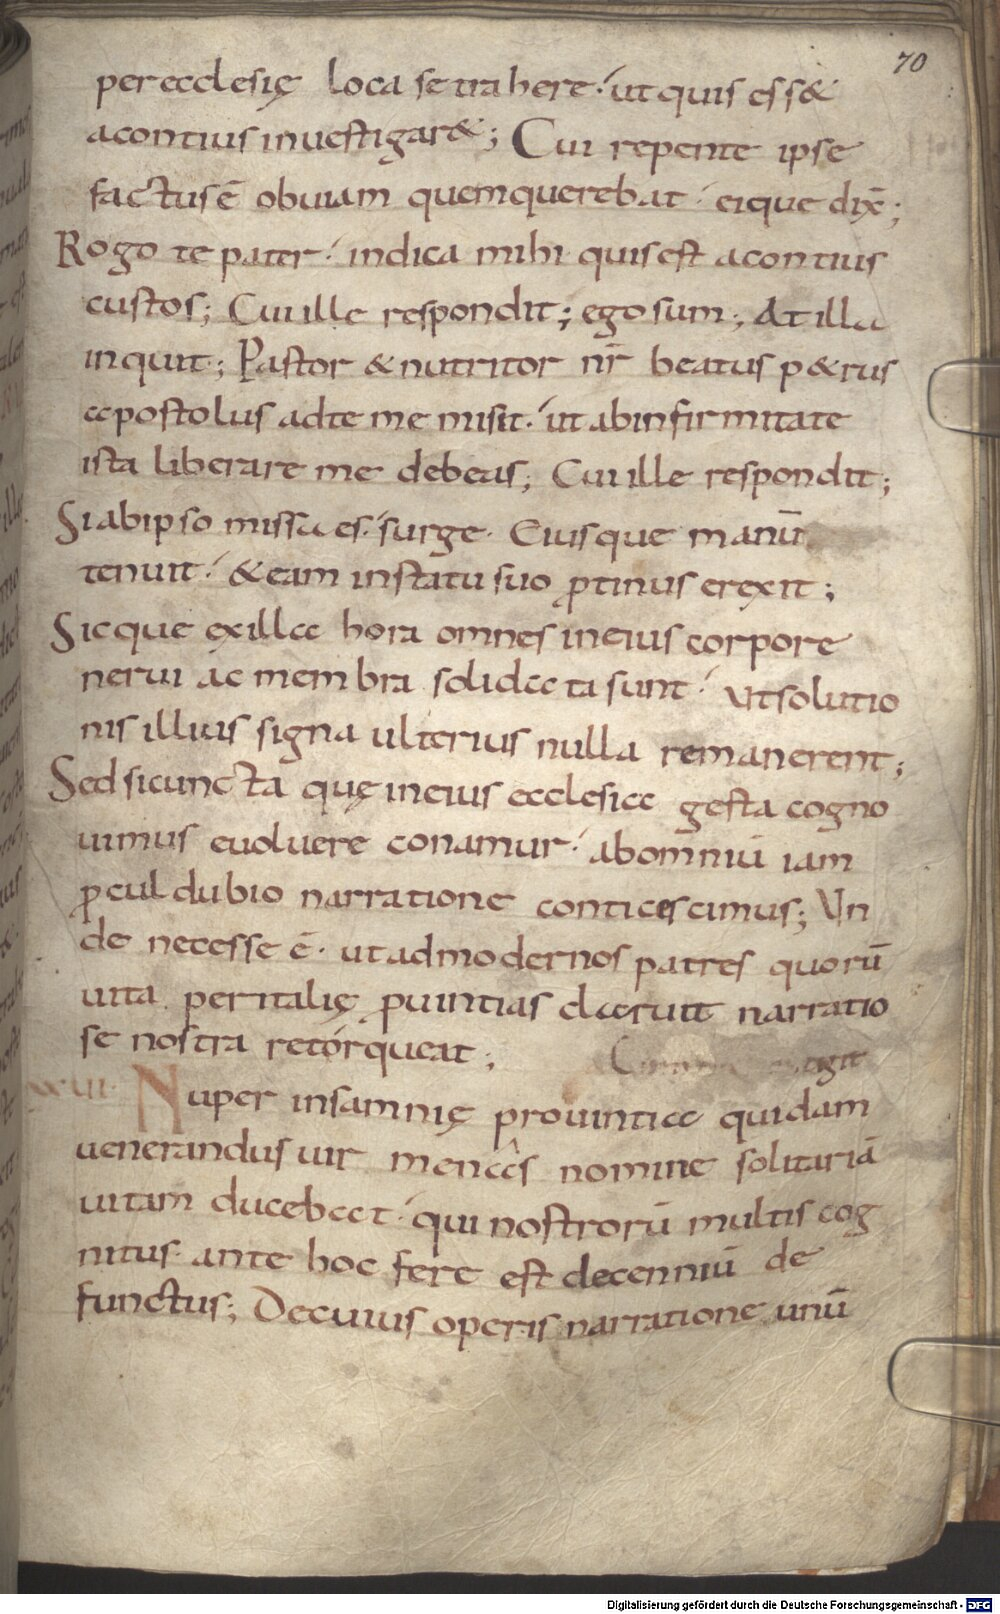 70
per ecclesię loca se trahere. ut quis ess&
acontius inuestigar&; Cui repente ipse
factus ē obuiam quem querebat. eique dix̄;
Rogo te pater. indica mihi quis est acontius
custos; Cui ille respondit; ego sum; At illa
inquit; Pastor & nutritor nr̄ beatus p&rus
apostolus ad te me misit. ut ab infirmitate
ista liberare me debeas; Cui ille respondit;
Si ab ipso missa es. surge. Eiusque manū
tenuit. & eam in statu suo ꝓtinus erexit;
Sicque ex illa hora omnes in eius corpore
nerui ac membra solidata sunt. Ut solutio
nis illius signa ulterius nulla remanerent;
Sed si cuncta quę in eius ecclesia gesta cogno
uimus euoluere conamur. ab omniū iam
ꝓcul dubio narratione conticescimus; Un
de necesse ē. ut ad modernos patres quorū
uita per italię ꝓuintias claruit narratio
se nostra retorqueat;
Nuper in samnię prouintia quidam
uenerandus uir menas nomine solitariā
uitam ducebat. qui nostrorū multis cog
nitus ante hoc fere est decenniū de
functus; De cuius operis narratione unū
Digitalisierung gefördert durch die Deutsche Forschungsgemeinschaft - DFG